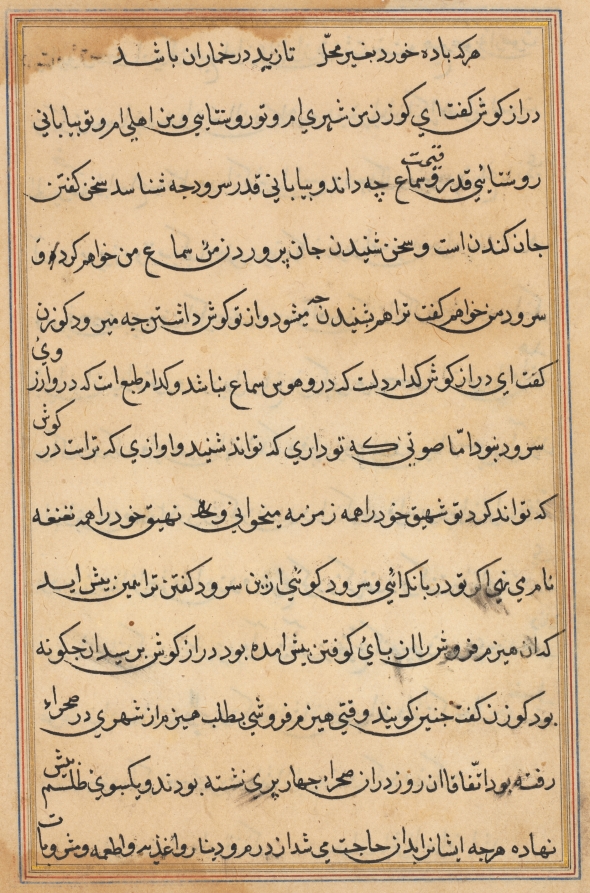 هرکه باده خورد بغیر محلّ تازید در خماران باشد
دراز کوش کفت ای کوزن من شهری ام و تو روستایی و من اهلی ام و تو بیابانی
روستائی قدر و قیمت سماع چه داند و بیابانی قدر سرود جه شناسد سخن کفتن
جان کندن است و سخن شنیدن جان پروردن من سماع من خواهم کرد و
سرود من خواهم کفت ترا هم شنیدن چه میشود و از تو کوش داشتن جه میرود کوزن
کفت ای دراز کوش کدام دلست که درو هوس سماع نباشد و کدام طبع است که درو ارزوی
سرود نبود امّا صوتی که تو داری که تواند شنید و اوازی که تراست در کوش
که تواند کرد تو شهیق خود را همه زمزمه میخوانی و نهیق خود را همه نغنغه
نام می نهی اکر تو در بانک ائی و سرود کوئی از این سرود کفتن ترا همین پیش اید
کدان هیزم فروش را از پای کوفتن پیش امده بود دراز کوش پرسید ان جکونه
بود کوزن کفت جنین کویند وقتی هیزم فروشی بطلب هیزم از شهری در صحراء
رفته بود اتّفاقا ان روز دران صحراء جهار پری نشته بودند و یکسبوی طلسم پیش
نهاده هرجه ایشانرا بدان حاجت می شد از درم و دینار و اغذیه و اطعمه و مشروبات